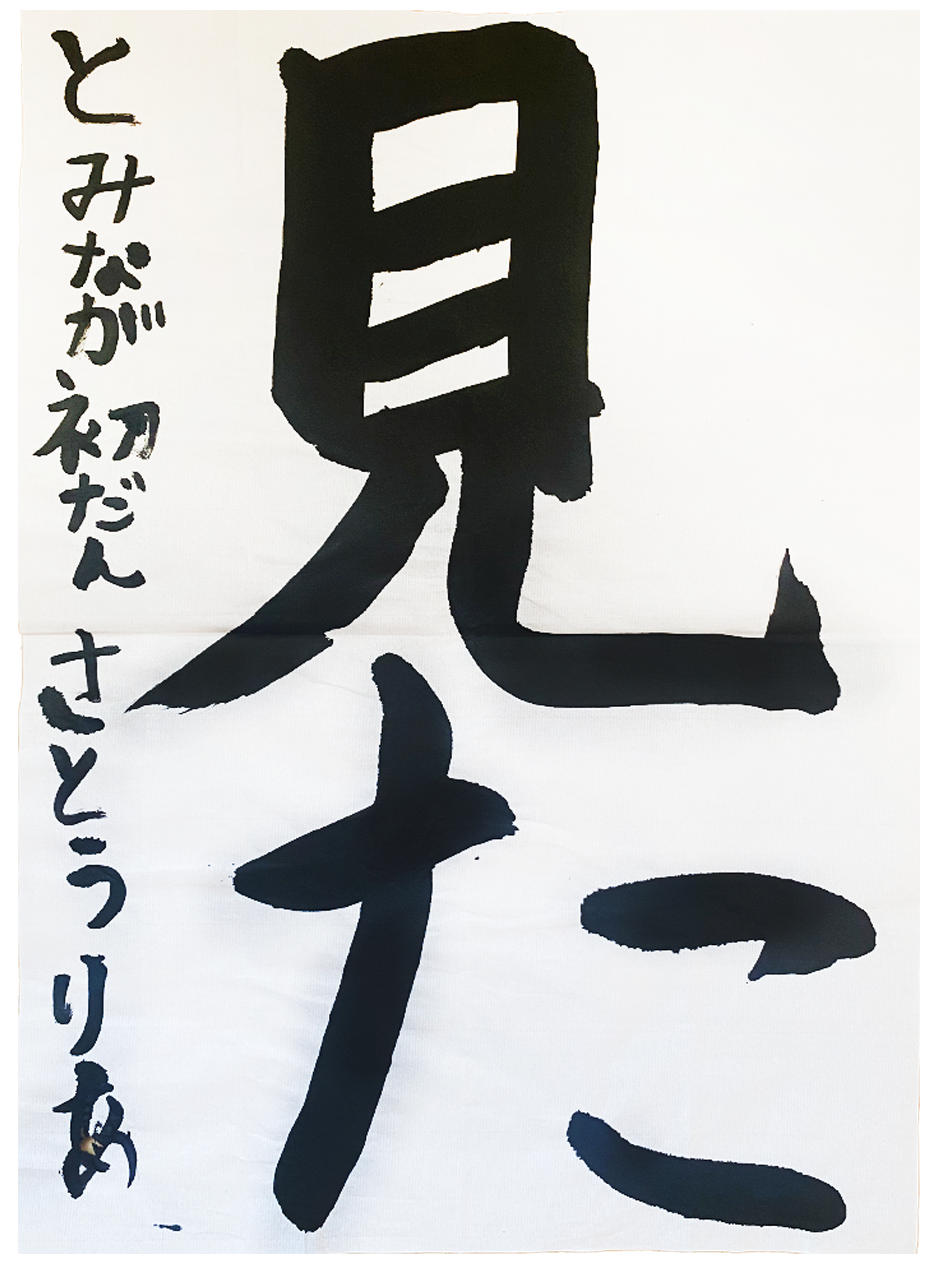 見た
とみなが初だん さとうりあ